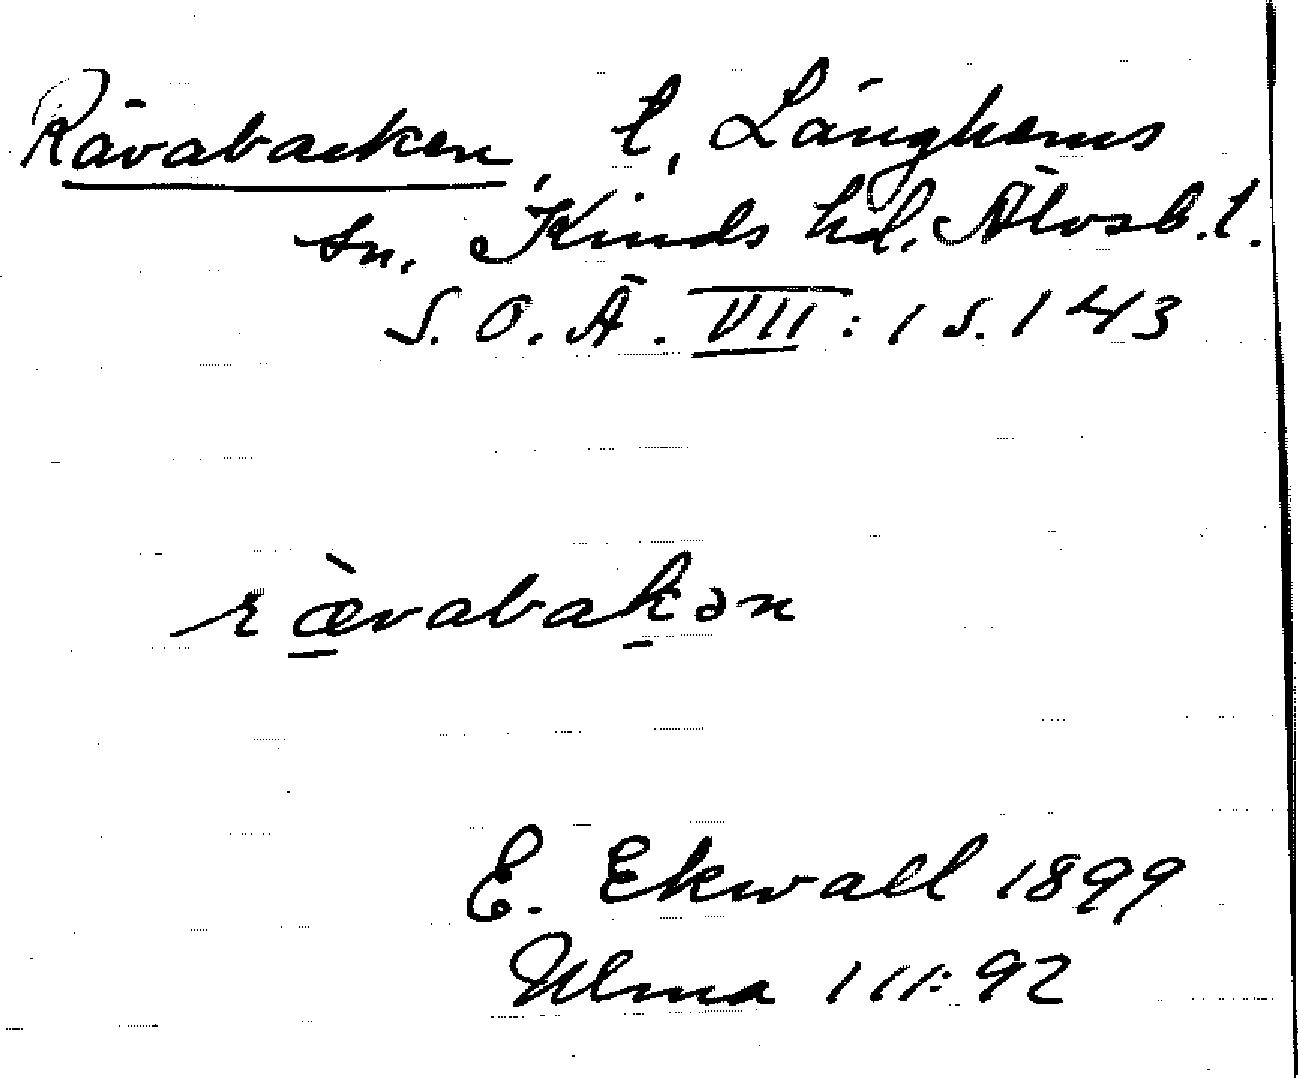 Rävabacken, l, Länghems
sn. Kinds hd. Älvsb. l.
S. O. Ä. VII: 1 s. 143
rævabakən
E. Ekwall 1899
Ulma 111:92